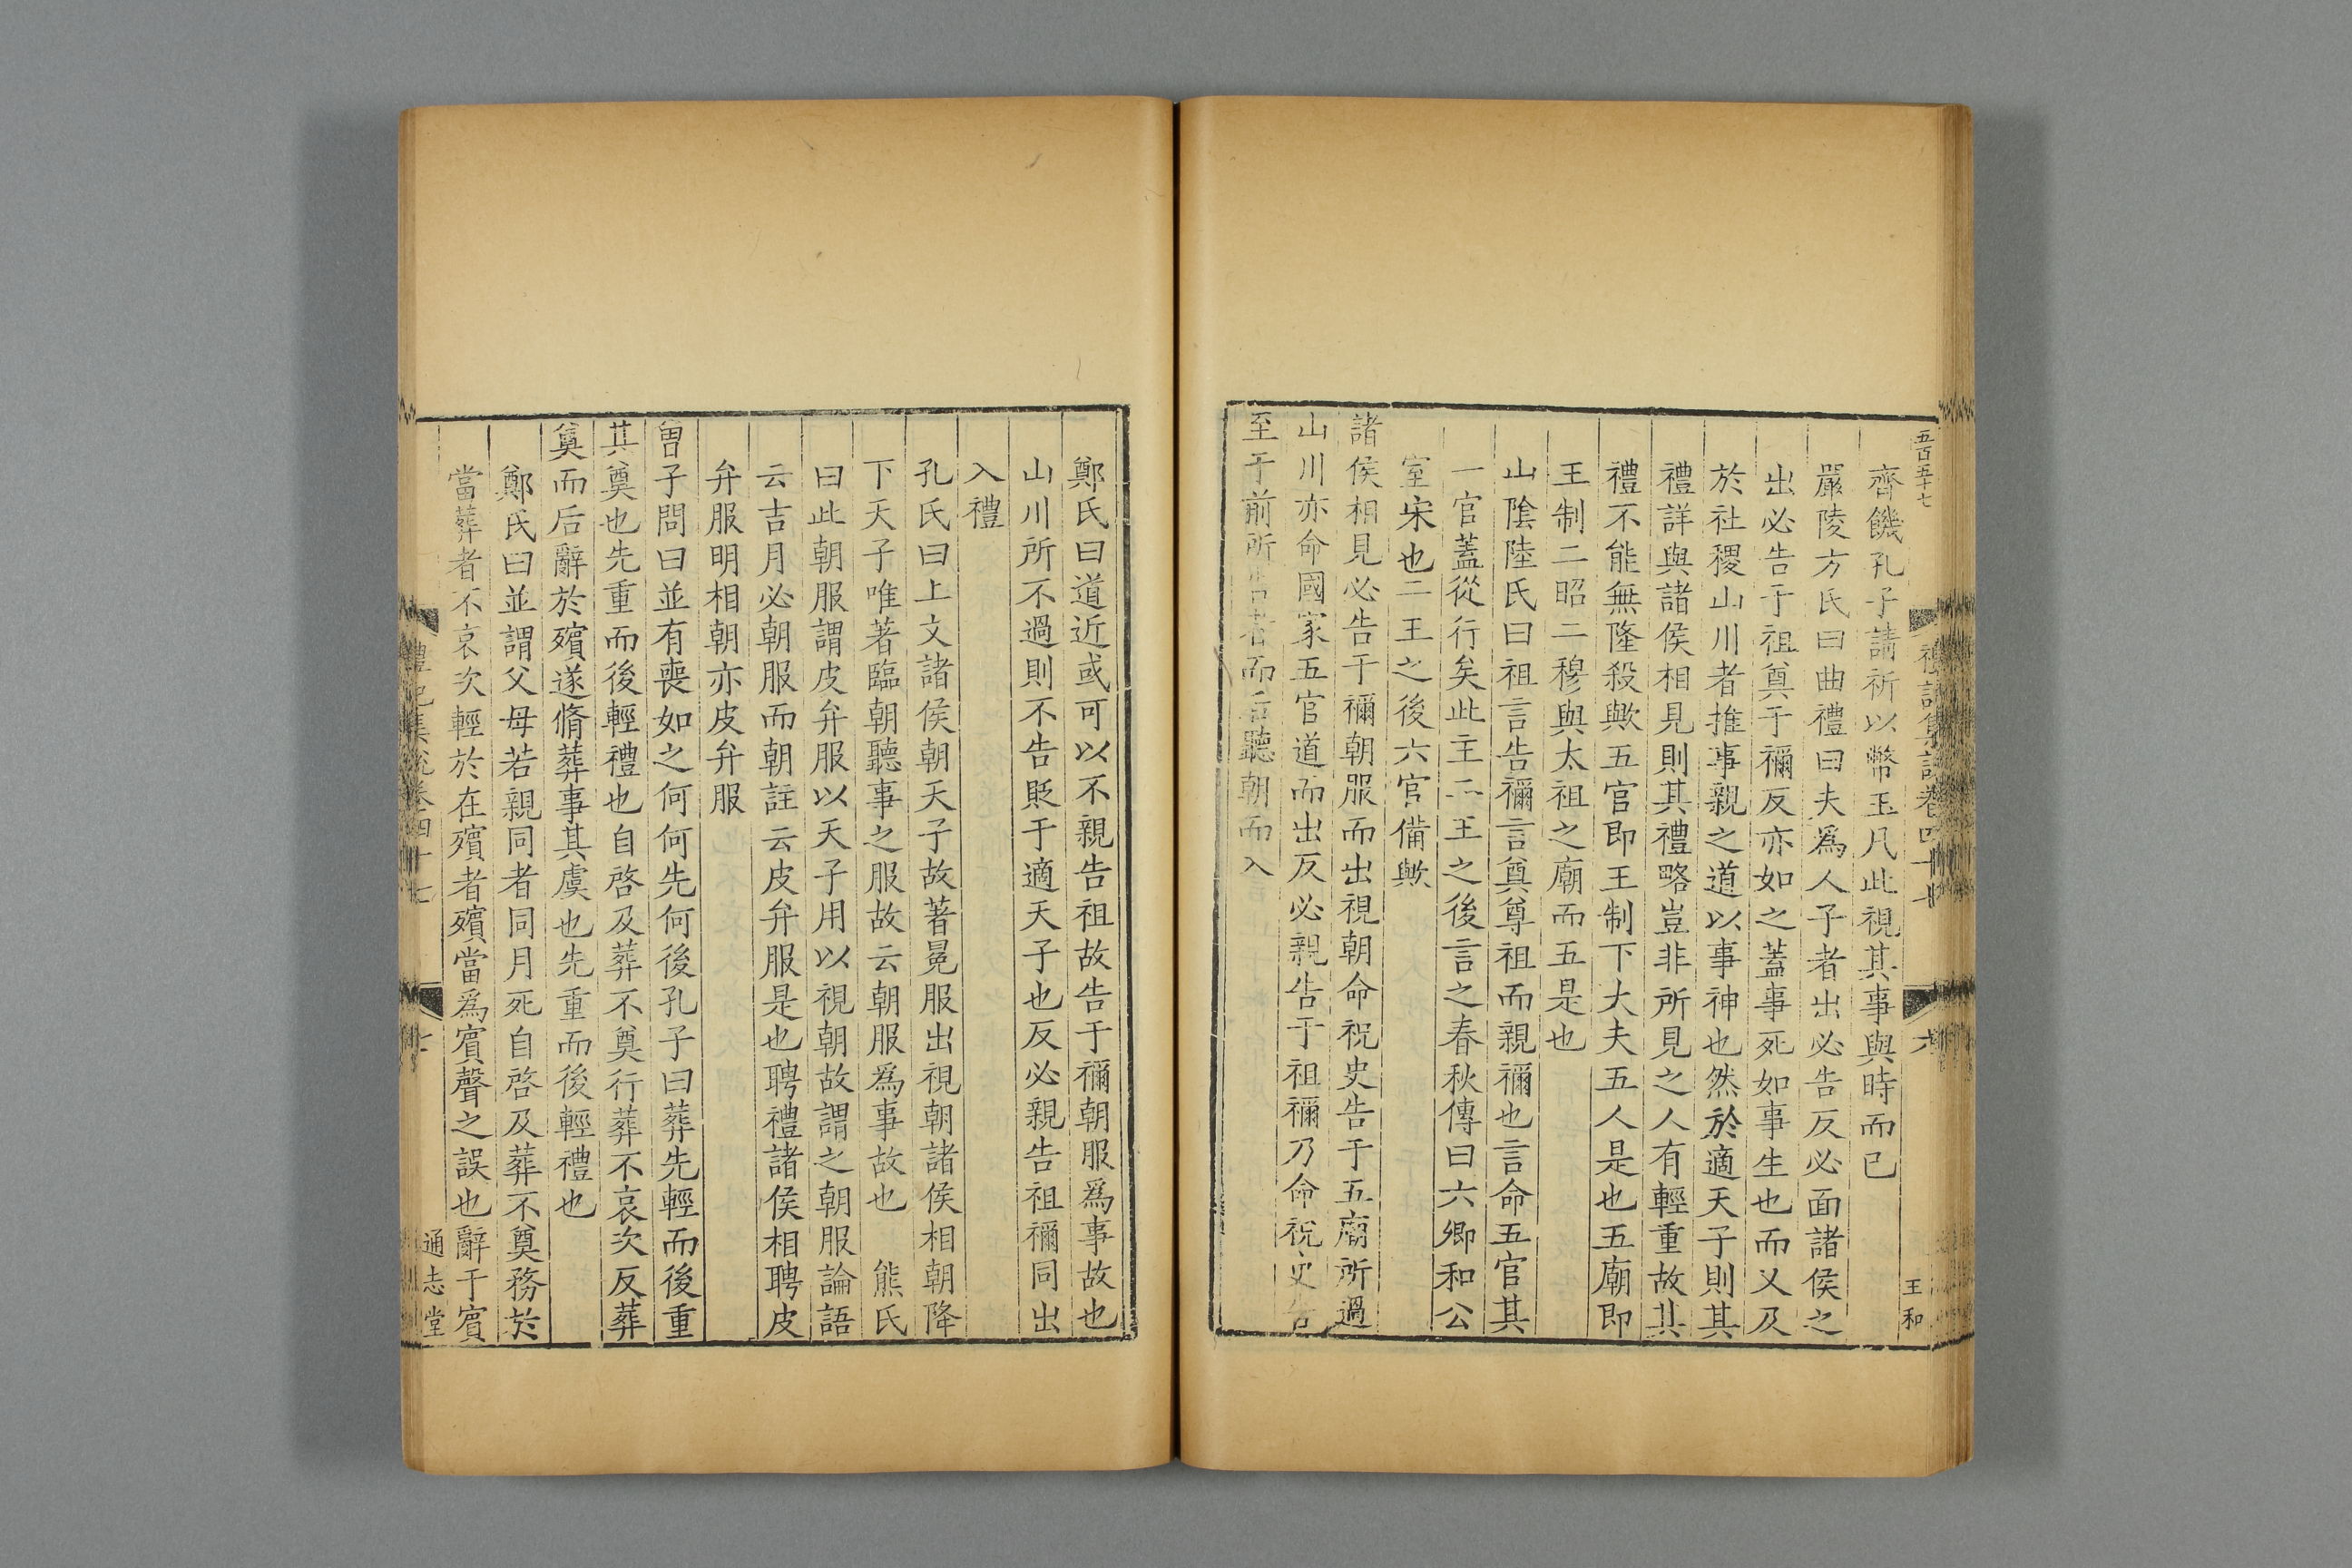 五百五十七
禮記集說卷四十七
六
王和
齊饑孔子請祈以幣玉凡此視其事與時而已
嚴陵方氏曰曲禮曰夫爲人子者出必告反必面諸侯之
出必告于祖奠于禰反亦如之蓋事死如事生也而又及
於社稷山川者推事親之道以事神也然於適天子則其
禮詳與諸侯相見則其禮略豈非所見之人有輕重故其
禮不能無隆殺歟五官即王制下大夫五人是也五廟即
王制二昭二穆與太祖之廟而五是也
山陰陸氏曰祖言告禰言奠尊祖而親禰也言命五官其
一官蓋從行矣此主二王之後言之春秋傳曰六卿和公
室宋也二王之後六官備歟
諸侯相見必告于禰朝服而出視朝命祝史告于五廟所過
山川亦命國家五官道而出反必親告于祖禰乃命祝史告
至于前所告者而后聽朝而入
鄭氏曰道近或可以不親告祖故告于禰朝服爲事故也
山川所不過則不告貶于適天子也反必親告祖禰同出
入禮
孔氏曰上文諸侯朝天子故著冕服出視朝諸侯相朝降
下天子唯著臨朝聽事之服故云朝服爲事故也 熊氏
曰此朝服謂皮弁服以天子用以視朝故謂之朝服論語
云吉月必朝服而朝註云皮弁服是也聘禮諸侯相聘皮
弁服明相朝亦皮弁服
曾子問曰並有喪如之何何先何後孔子曰葬先輕而後重
其奠也先重而後輕禮也自啓及葬不奠行葬不哀次反葬
奠而后辭於殯遂脩葬事其虞也先重而後輕禮也
鄭氏曰並謂父母若親同者同月死自啓及葬不奠務於
當葬者不哀次輕於在殯者殯當爲賓聲之誤也辭于賓
禮記集說卷四十七
七
通志堂